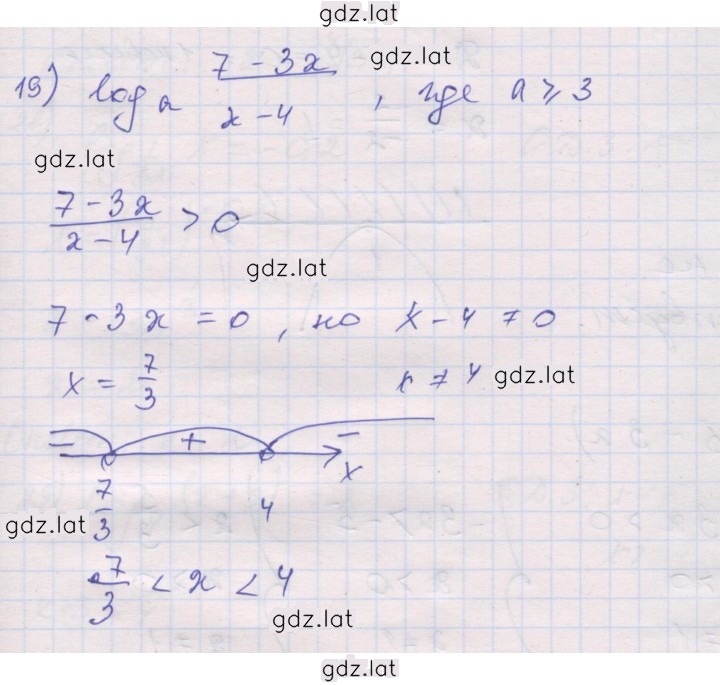 gdz.lat
19) log a (7 - 3x)/(x - 4), где a ⩾ 3
gdz.lat
gdz.lat
(7 - 3x)/(x - 4) > 0
gdz.lat
7 - 3x = 0, но x - 4 ≠ 0
x = 7/3 x ≠ 4 gdz.lat
- + -
x
7/3 4
gdz.lat
7/3 < x < 4
gdz.lat
gdz.lat